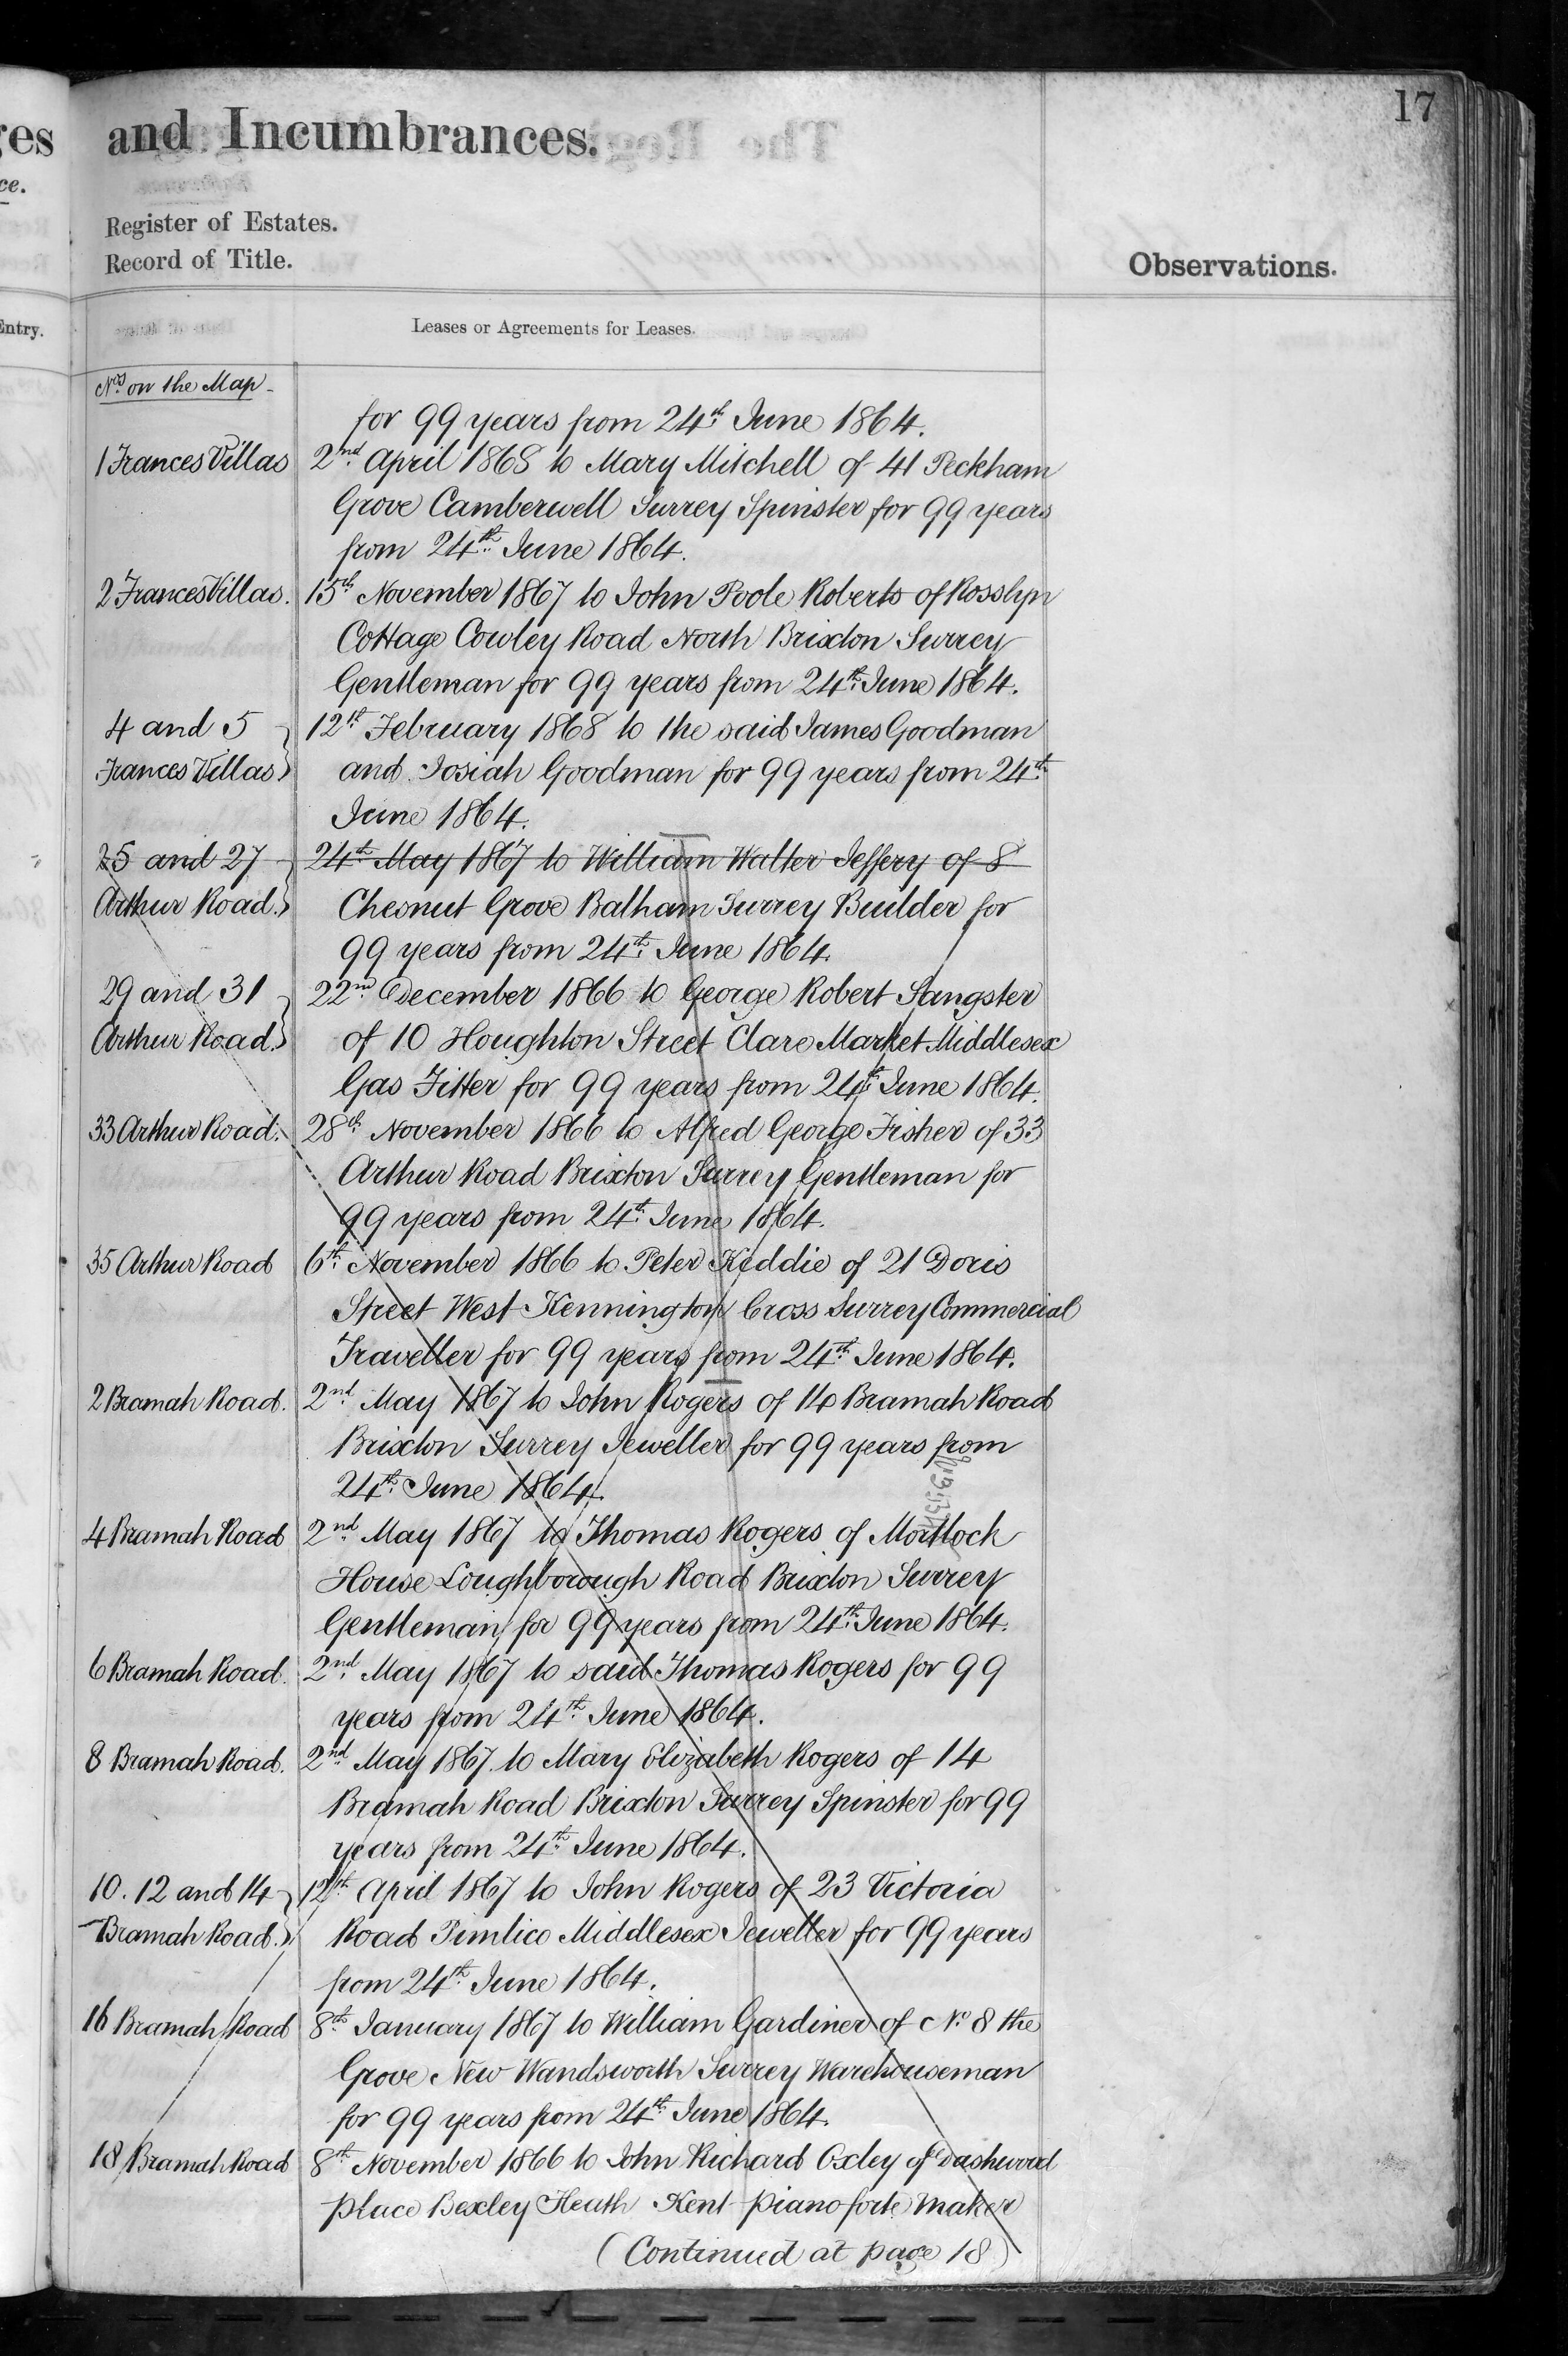 17
ges
and Incumbrances.
ce.
Register of Estates.
Record of Title.
Observations.
Entry.
Leases or Agreements for Leases.
Nos. on the Map
for 99 years from 24th June 1864.
1 Frances Villas 2nd April 1868 to Mary Mitchell of 41 Peckham
Grove Camberwell Surrey Spinster for 99 years
from 24th June 1864.
2 Frances Villas. 15th November 1867 to John Poole Roberts of Rosslyn
Cottage Cowley Road North Brixton Surrey
Gentleman for 99 years from 24th June 1864.
4 and 5 12th February 1868 to the said James Goodman
Frances Villas and Josiah Goodman for 99 years from 24th
June 1864.
25 and 27 24th May 1867 to William Walter Jeffery of 8
Arthur Road. Chesnut Grove Balham Surrey Builder for
99 years from 24th June 1864.
29 and 31 22nd December 1866 to George Robert Sangster
Arthur Road. of 10 Houghton Street Clare Market Middlesex
Gas Fitter for 99 years from 24th June 1864.
33 Arthur Road. 28th November 1866 to Alfred George Fisher of 33
Arthur Road Brixton Surrey Gentleman for
99 years from 24th June 1864.
35 Arthur Road 6th November 1866 to Peter Kiddie of 21 Doris
Street West Kennington Cross Surrey Commercial
Traveller for 99 years from 24th June 1864.
2 Bramah Road. 2nd May 1867 to John Rogers of 14 Bramah Road
Brixton Surrey Jeweller for 99 years from
24th June 1864.
4 Bramah Road 2nd May 1867 to Thomas Rogers of Mortloch
House Loughborough Road Brixton Surrey
Gentleman for 99 years from 24th June 1864.
6 Bramah Road. 2nd May 1867 to said Thomas Rogers for 99
years from 24th June 1864.
8 Bramah Road. 2nd May 1867 to Mary Elizabeth Rogers of 14
Bramah Road Brixton Surrey Spinster for 99
years from 24th June 1864.
10. 12 and 14 12th April 1867 to John Rogers of 23 Victoria
Bramah Road. Road Pimlico Middlesex Jeweller for 99 years
from 24th June 1864.
16 Bramah Road 8th January 1867 to William Gardiner of No. 8 the
Grove New Wandsworth Surrey Warehouseman
for 99 years from 24th June 1864.
18 Bramah Road 8th November 1866 to John Richard Oxley of Dashwood
place Bexley Heath Kent pianoforte Maker
(Continued at page 18)